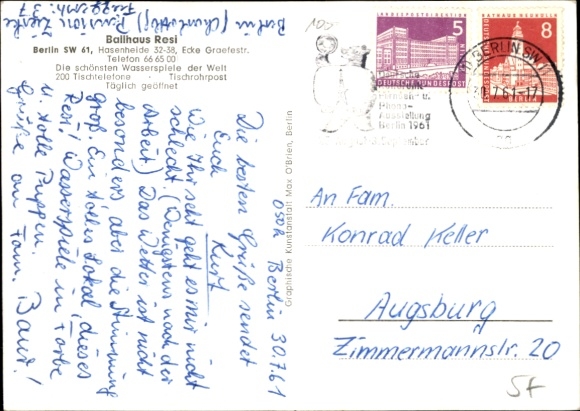 Berlin (Charlottbg) Pension Zierke
Fuggerstr. 37
Ballhaus Resi
Berlin SW 61, Hasenheide 32-38, Ecke Graefestr.
Telefon 66 65 00
Die schönsten Wasserspiele der Welt
200 Tischtelefone · Tischrohrpost
Täglich geöffnet
Berlin 30.7.61
Die besten Grüße sendet
Euch Kurt
Wie Ihr seht geht es mir nicht
schlecht. (Wenigstens nach der
Arbeit) Das Wetter ist nicht
besonders aber die Stimmung
groß. Ein tolles Lokal, dieses
Resi! Wasserspiele in Farbe
u. tolle Puppen.
Grüße an Fam. Baur!
Graphische Kunstanstalt Max O'Brien, Berlin
LANDESPOSTDIREKTION
5
DEUTSCHE BUNDESPOST
BERLIN
RATHAUS NEUKÖLLN
8
DEUTSCHE BUNDESPOST
BERLIN SW
30.7.61-17
Deutsche
Rundfunk-
Fernseh- u.
Phono-
Ausstellung
Berlin 1961
September
An Fam.
Konrad Keller
Augsburg
Zimmermannstr. 20